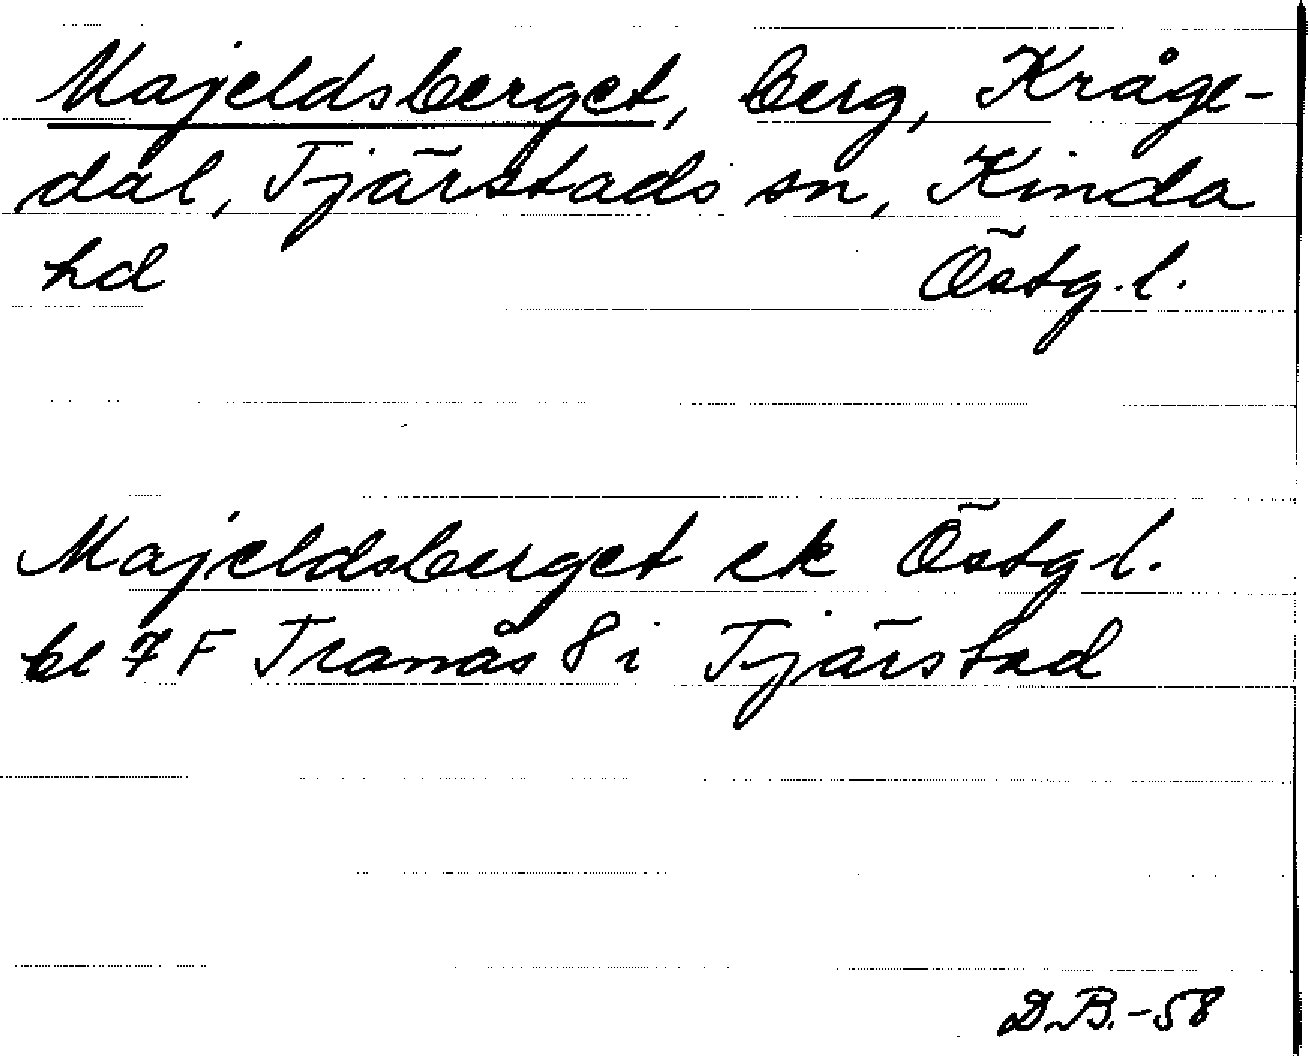 Majeldsberget, berg, Kråge-
dal, Tjärstads sn, Kinda
hd Östg.l.
Majeldsberget ek Östgl.
bl 7 F Tranås 8 i Tjärstad
D.B.-58